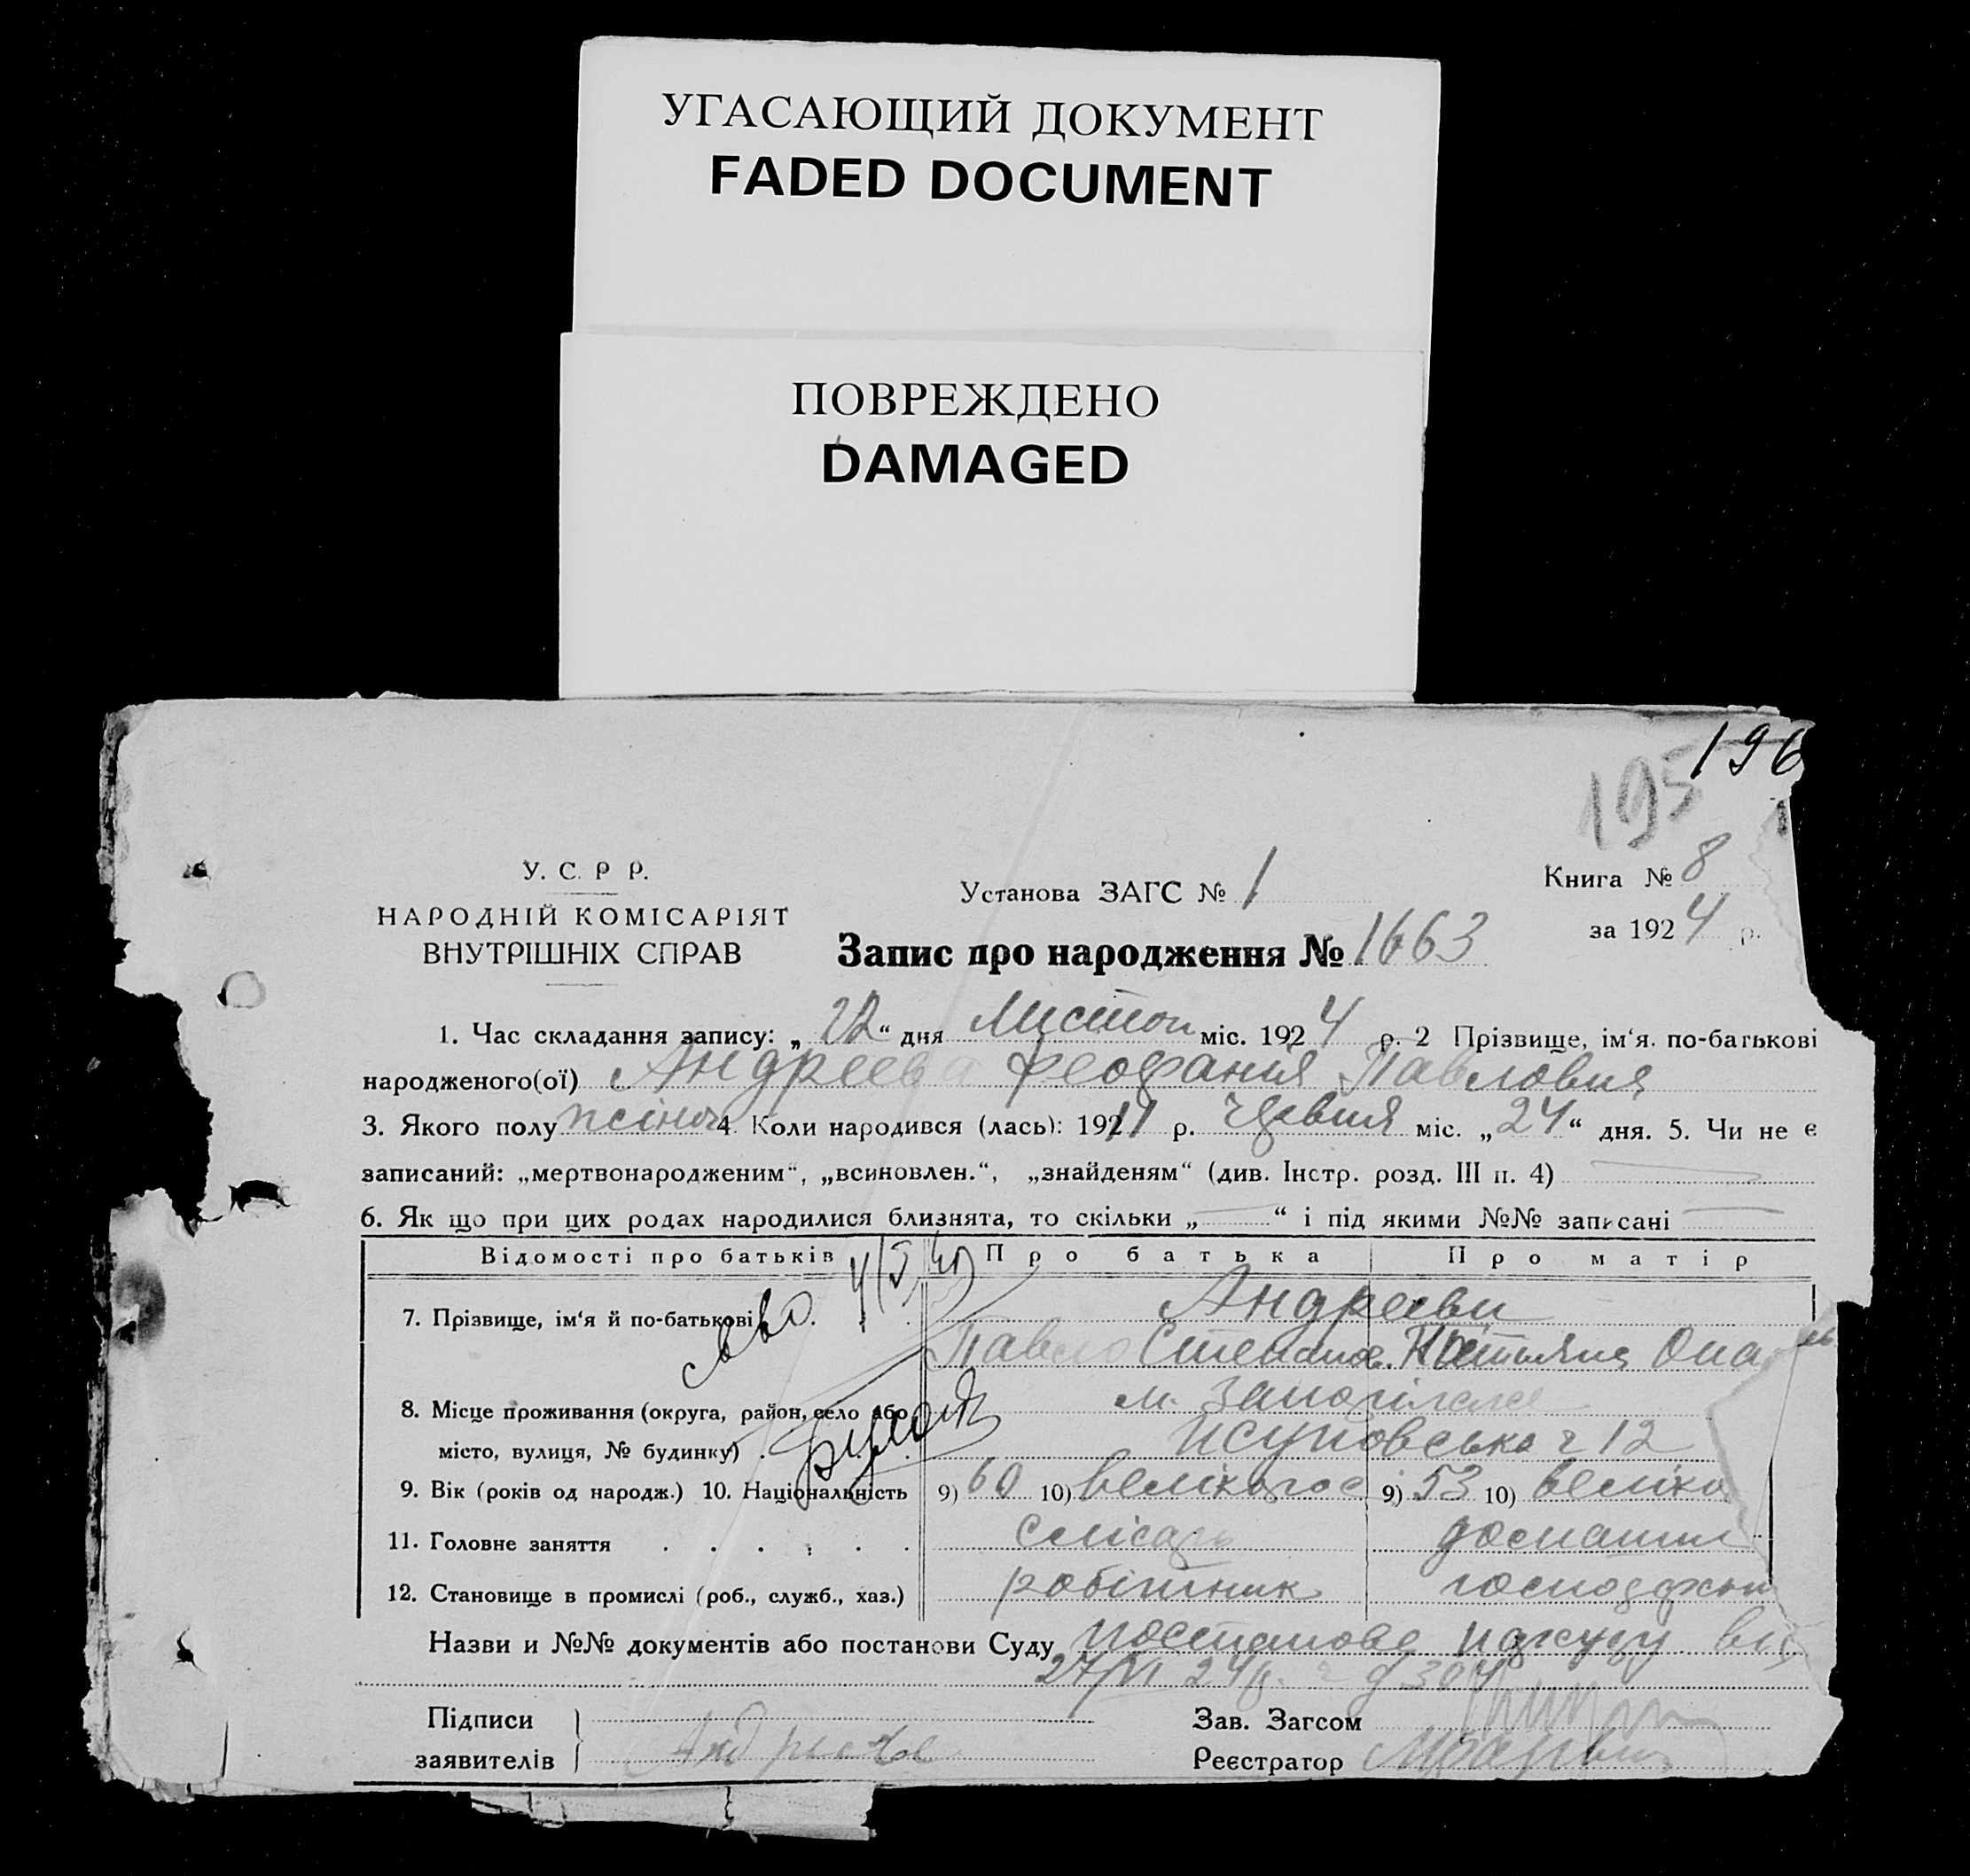 УГАСАЮЩИЙ ДОКУМЕНТ
FADED DOCUMENT
ПОВРЕЖДЕНО
DAMAGED
196
195
У. С. Р Р.
НАРОДНІЙ КОМІСАРІЯТ
ВНУТРІШНІХ СПРАВ
Установа ЗАГС № 1
Книга № 8
за 1924 р.
Запис про народження № 1663
1. Час складання запису: „22“ дня Листоп міс. 1924 р. 2 Прізвище, ім‘я. по-батькові
народженого(ої) Андреева Феофания Павловна
3. Якого полу жіноч 4. Коли народився (лась): 1911 р. Червня міс. „24“ дня. 5. Чи не є
записаний: „мертвонародженим“, „всиновлен.“, „знайденям“ (див. Інстр. розд. III п. 4)
6. Як що при цих родах народилися близнята, то скільки „ “ і під якими №№ записані
Відомості про батьків Про батька Про матір
7. Прізвище, ім‘я й по-батькові Андрееви
Павло Степанов. Тетьяна Опа
8. Місце проживання (округа, район, село або м. Запоріжже
місто, вулиця, № будинку) 12
9. Вік (років од народж.) 10. Національність 9) 60 10) великорос 9) 53 10) велико
11. Головне заняття слісарь домашнє
12. Становище в промислі (роб., служб., хаз.) робітник господарь
Назви и №№ документів або постанови Суду постанова нарсуду від
27/VI 24р. 304
Підписи
заявителів Андреева
Зав. Загсом
Реєстратор